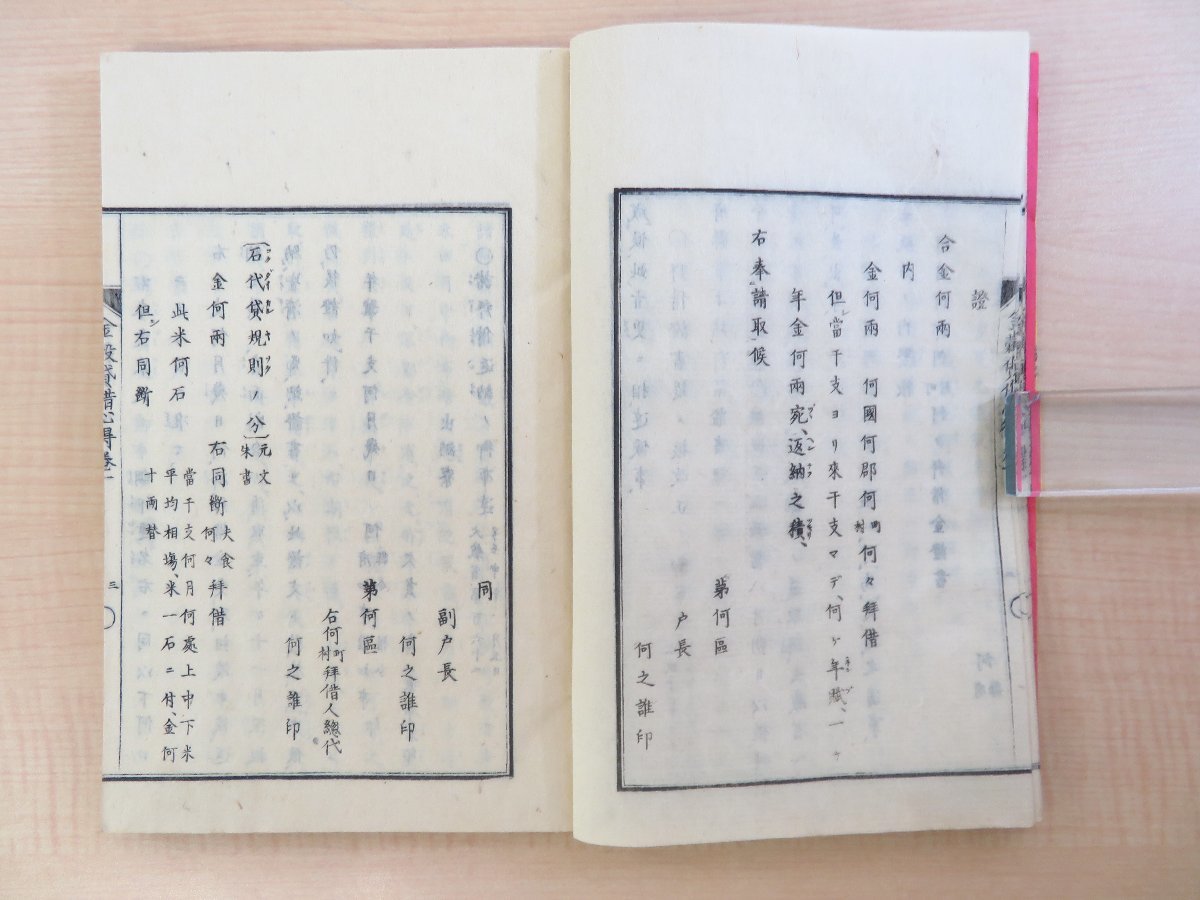 證
合金何兩
内
金何兩 何國何郡何町村何々拜借
但シ當干支ヨリ來干支マデ、何ケ年賦、一ケ
年金何兩宛、返納之積、
右奉請取候
第何區
戸長
何之誰印
同
副戸長
何之誰印
第何區
右何町村拜借人總代
何之誰印
(石代貸規則ノ分)元文朱書
右同斷夫食何々拜借
金何兩
此米何石 當干支何月何處上中下米平均相場、米一石ニ付、金何十兩替
但シ右同斷
金穀貸借心得卷一
三